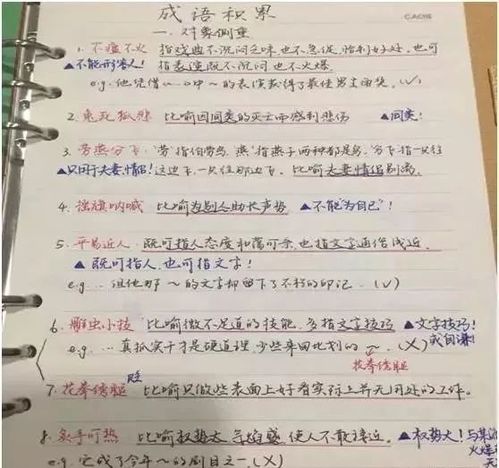 成语积累
一. 对象侧重
1. 不瘟不火 指戏曲不沉闷乏味也不急促, 恰到好处, 也可
▲不能形容人! 指表演既不沉闷也不火爆
e.g. 他凭借 ~ 的表演获得了最佳男主角奖。(√)
2. 兔死狐悲 比喻因同类的灭亡而感到悲伤 ▲同类!
3. 劳燕分飞: "劳"指伯劳鸟, "燕"指燕子两种都是鸟, "分飞"指一只往
▲只用于夫妻、情侣! 这边飞一只往那边飞. 比喻夫妻情侣别离
4. 摇旗呐喊 比喻为别人助长声势 ▲不能"为自己"!
5. 平易近人: 既可指人态度和蔼可亲, 也指文字通俗浅近.
▲既可指人, 也可指文字!
e.g. ... 但他那 ~ 的文字却留下了不朽的印记. (√)
6. 雕虫小技 比喻微不足道的技能, 多指文字技巧 ▲文字技巧!
或自谦!
e.g. ... 真抓实干才是硬道理, 少些来回比划的 ~ (×)
花拳绣腿
7. 花拳绣腿 比喻只做些表面上好看实际上并无用处的工作.
8. 炙手可热 比喻权势大气焰盛, 使人不敢接近. ▲权势大!
e.g. 它成了今年 ~ 的剧目之一 (×)